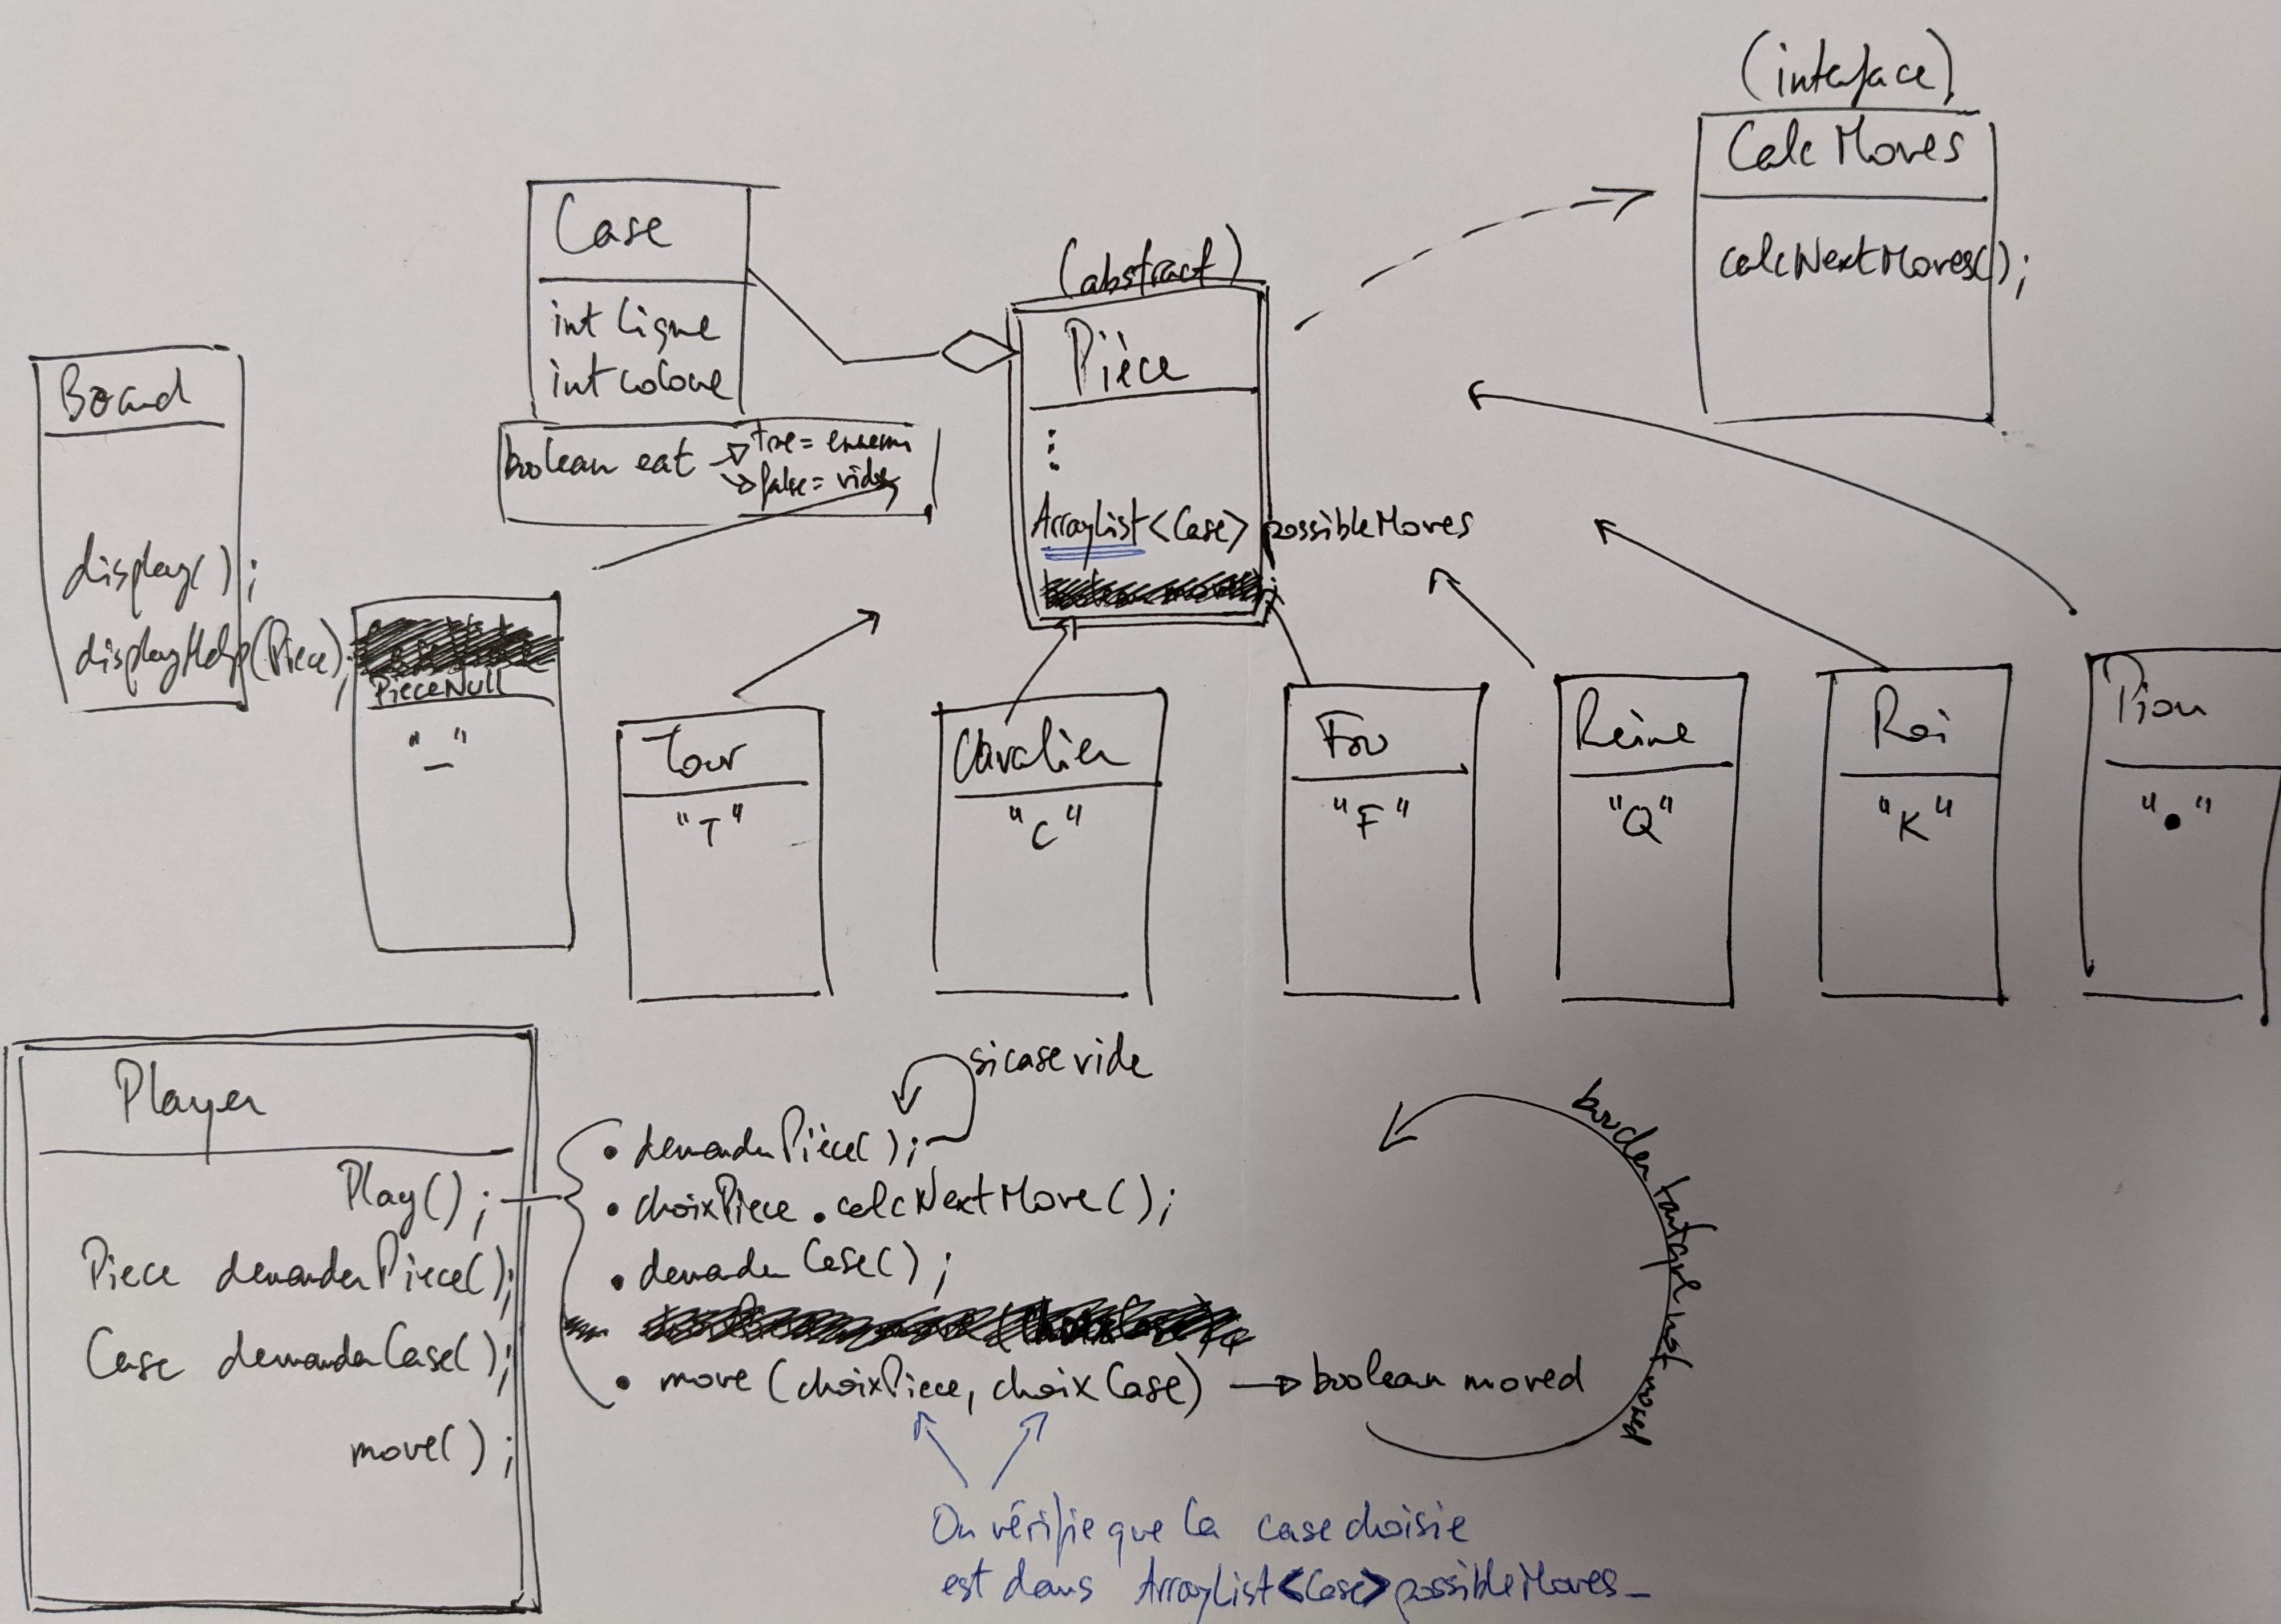 (interface)
Calc Moves
calcNextMoves();
Case
int ligne
int colone
boolean eat
true = ennemi
false = vide
(abstract)
Pièce
ArrayList<Case> possibleMoves
Board
display();
displayHelp(Piece);
PieceNull
"_"
Tour
"T"
Cavalier
"C"
Fou
"F"
Reine
"Q"
Roi
"K"
Pion
"•"
Player
Play();
Piece demanderPiece();
Case demanderCase();
move();
si case vide
• demanderPièce();
• choixPiece.calcNextMove();
• demander Case();
• move (choixPiece, choixCase) → boolean moved
boucler tant que not moved
On vérifie que la case choisie
est dans ArrayList<Case> possibleMoves_